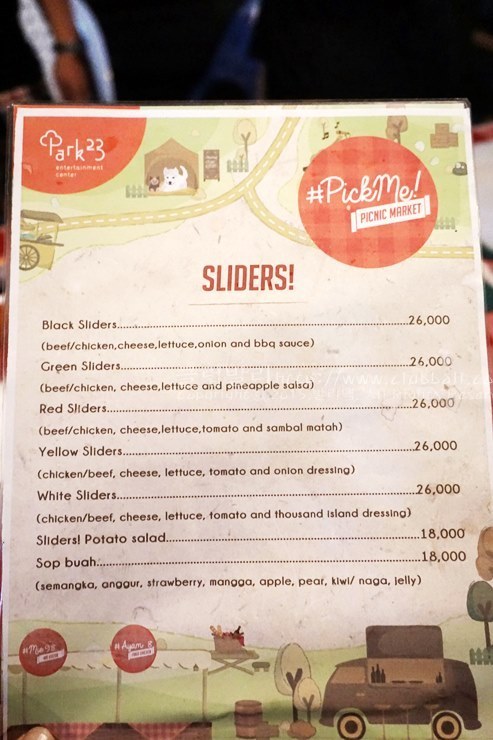 Park23
entertainment
center
#PickMe!
PICNIC MARKET
SLIDERS!
Black Sliders...........................................................................26,000
(beef/chicken,cheese,lettuce,onion and bbq sauce)
Green Sliders..........................................................................26,000
(beef/chicken, cheese,lettuce and pineapple salsa)
Red Sliders..............................................................................26,000
(beef/chicken, cheese,lettuce,tomato and sambal matah)
Yellow Sliders..........................................................................26,000
(chicken/beef, cheese, lettuce, tomato and onion dressing)
White Sliders............................................................................26,000
(chicken/beef, cheese, lettuce, tomato and thousand island dressing)
Sliders! Potato salad................................................................18,000
Sop buah.................................................................................18,000
(semangka, anggur, strawberry, mangga, apple, pear, kiwi/ naga, jelly)